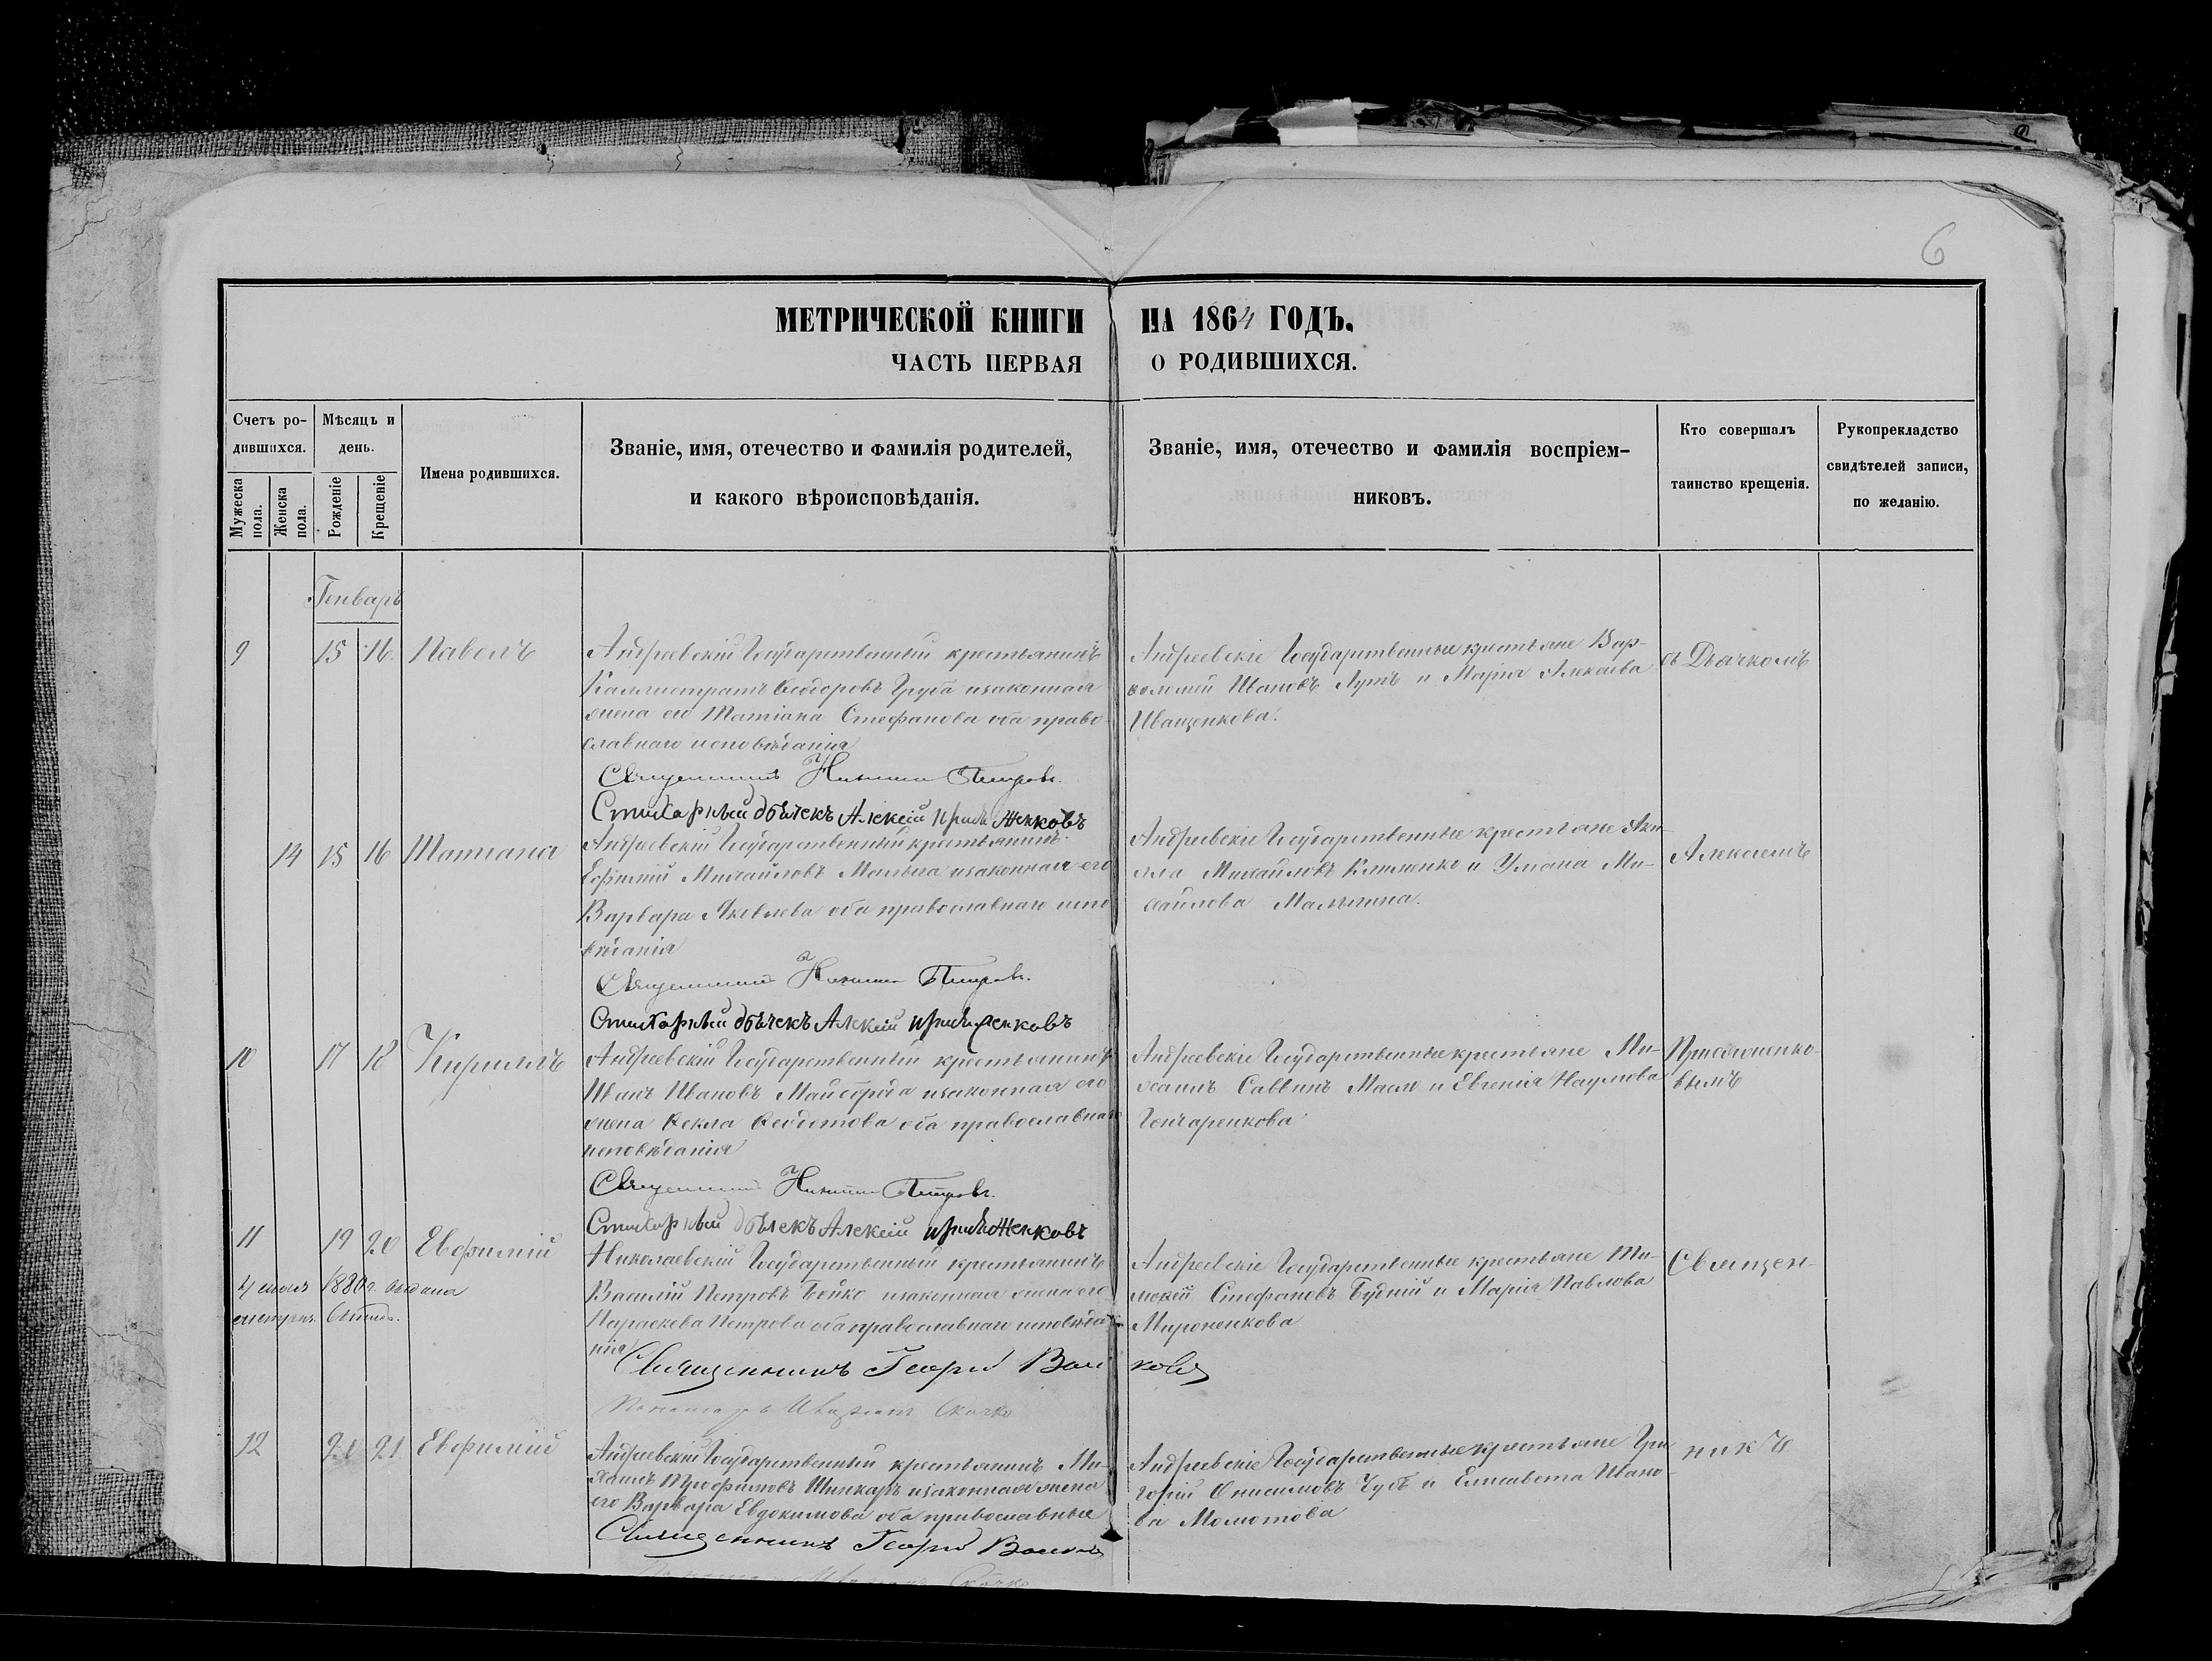 6
МЕТРИЧЕСКОЙ КНИГИ НА 1864 ГОДЪ.
ЧАСТЬ ПЕРВАЯ О РОДИВШИХСЯ.
Счетъ ро-
дившихся.
Мужеска пола.
Женска пола.
Мѣсяцъ и
день.
Рожденіе
Крещеніе
Имена родившихся.
Званіе, имя, отечество и фамилія родителей,
и какого вѣроисповѣданія.
Званіе, имя, отечество и фамилія воспріем-
никовъ.
Кто совершалъ
таинство крещенія.
Рукоприкладство
свидѣтелей записи,
по желанію.
Генварь
9 15 16 Павелъ
Андреевскій Государственный крестьянинъ
Каллистратъ Ѳеодоровъ Груба и законная
жена его Татіана Стефанова оба право-
славнаго исповѣданія
Священникъ Никита Петровъ.
Стихарный дьячекъ Алексій
Андреевскіе Государственные крестьяне Вар-
Ивановъ Лутъ и Марія Алексѣева
Иващенкова.
съ Дьячкомъ
14 15 16 Татіана
Андреевскій Государственный крестьянинъ
Ефимій Михайловъ и законная его
Варвара Яковлева оба православнаго испо-
вѣданія
Священникъ Никита Петровъ.
Стихарный дьячекъ Алексій
Андреевскіе Государственные крестьяне
Михайловъ Клименко и Ульяна Ми-
хайлова
Алексіемъ
10 17 18 Кириллъ
Андреевскій Государственный крестьянинъ
Иванъ Ивановъ Майстро и законная его
жена Ѳекла Ѳеодотова оба православнаго
исповѣданія
Священникъ Никита Петровъ.
Стихарный дьячекъ Алексій
Андреевскіе Государственные крестьяне Ми-
хаилъ Саввинъ Масло и Евгенія Наумова
Гончаренкова
11 19 20 Евфимій
1880 г. выдана
Николаевскій Государственный крестьянинъ
Василій Петровъ Бойко и законная жена его
Параскева Петрова оба православнаго исповѣда-
нія
Священникъ Георгій Волковъ
Пономарь
Андреевскіе Государственные крестьяне Ти-
моѳей Стефановъ Будній и Марія Павлова
Мироненкова
Священ-
12 20 21 Евфимій
Андреевскій Государственный крестьянинъ Ми-
хаилъ Трофимовъ Шинкарь и законная жена
его Варвара Евдокимова оба православные
Священникъ Георгій Волковъ
Андреевскіе Государственные крестьяне Гри-
горій Онисимовъ Чубъ и Елисавета Ивано-
ва Момотова
никъ